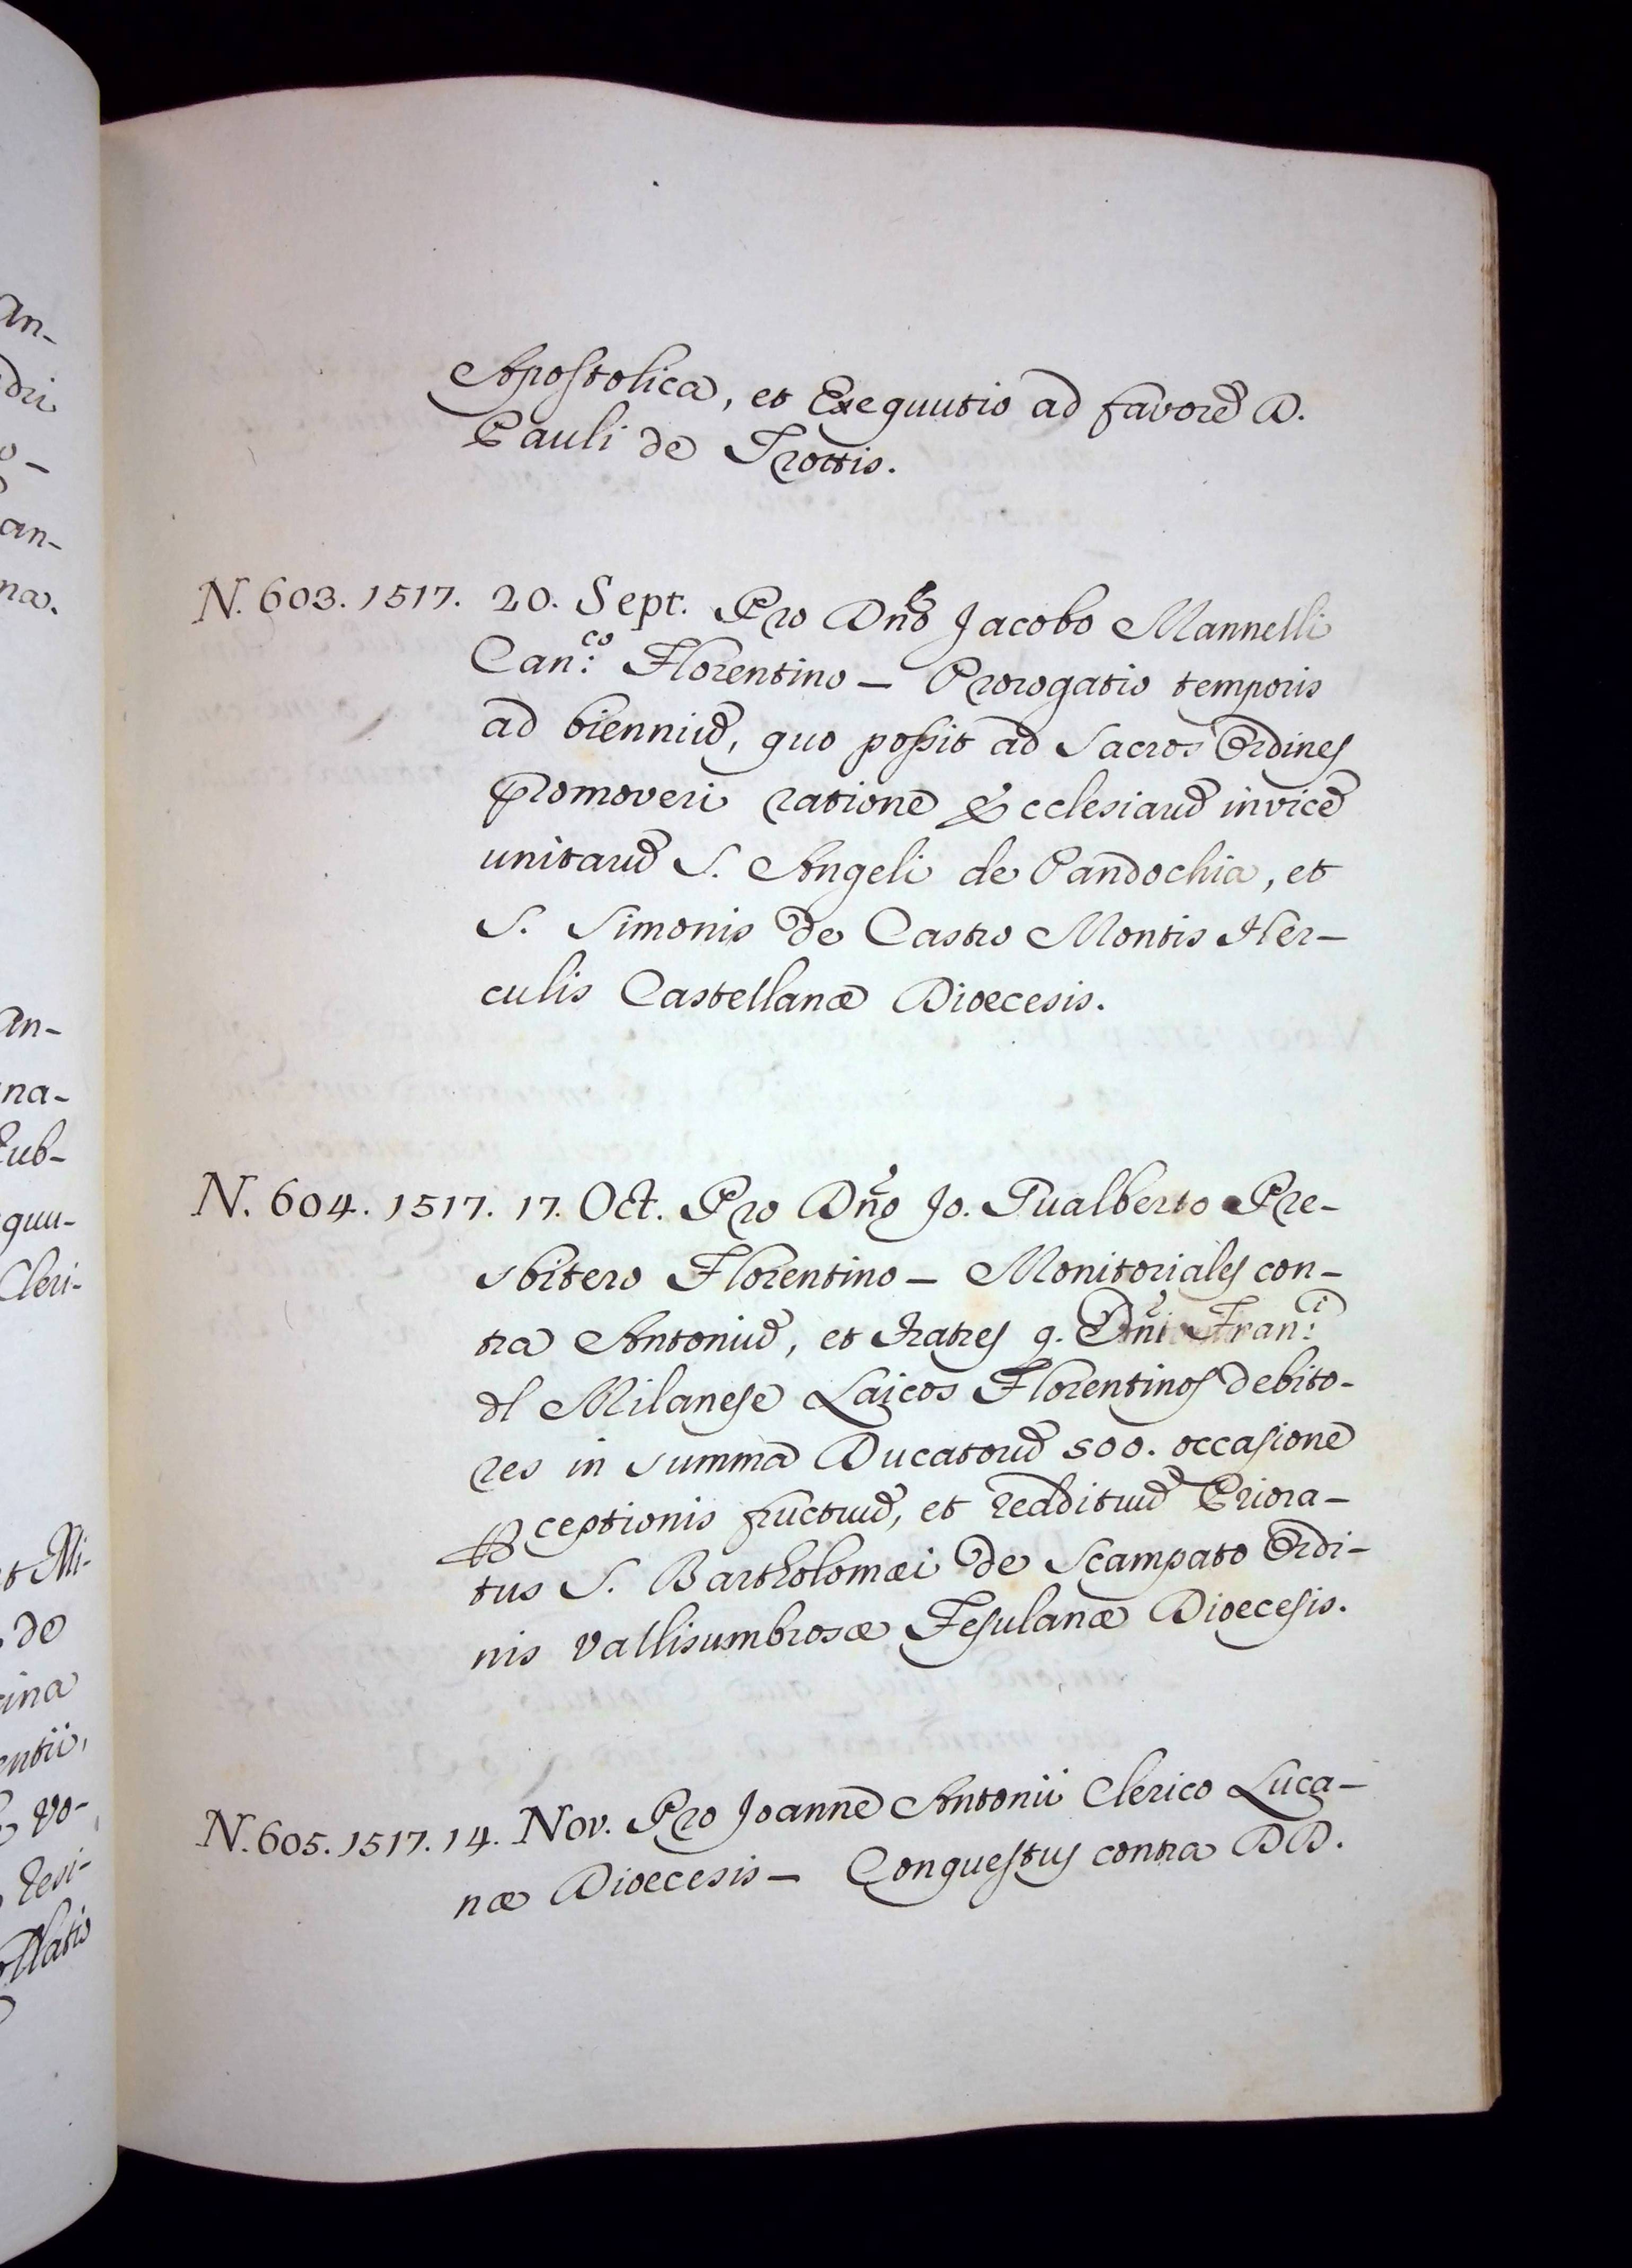 Apostolica, et Exequutio ad favorē D.
Pauli de Trottis.
N. 603. 1517. 20. Sept. Pro Dn̄o Jacobo Mannelli
Can:co Florentino – Prorogatio temporis
ad bienniū, quo possit ad Sacros Ordines
promoveri ratione Ecclesiarū invicē
unitarū S. Angeli de Pandochia, et
S. Simonis de Castro Montis Her-
culis Castellanæ Dioecesis.
N. 604. 1517. 17. Oct. Pro Dn̄o Jo. Gualberto Pre-
sbitero Florentino – Monitoriales con-
tra Antoniū, et Fratres q. Dn̄i Fran:i
dl Milanese Laicos Florentinos debito-
res in summa Ducatorū 500. occasione
ꝑceptionis fructuū, et reddituū Priora-
tus S. Bartholomæi de Scampato Ordi-
nis Vallisumbrosæ Fesulanæ Dioecesis.
N. 605. 1517. 14. Nov. Pro Joanne Antonii Clerico Luca-
næ Dioecesis – Conquestus contra DD.
An-
dri
an-
na.
An-
na-
quu-
Cleri-
de